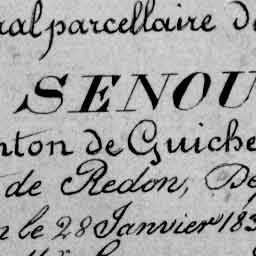 ral parcellaire de
SENOU
nton de Guiche
t de Redon, Dé
n le 28 Janvier 183